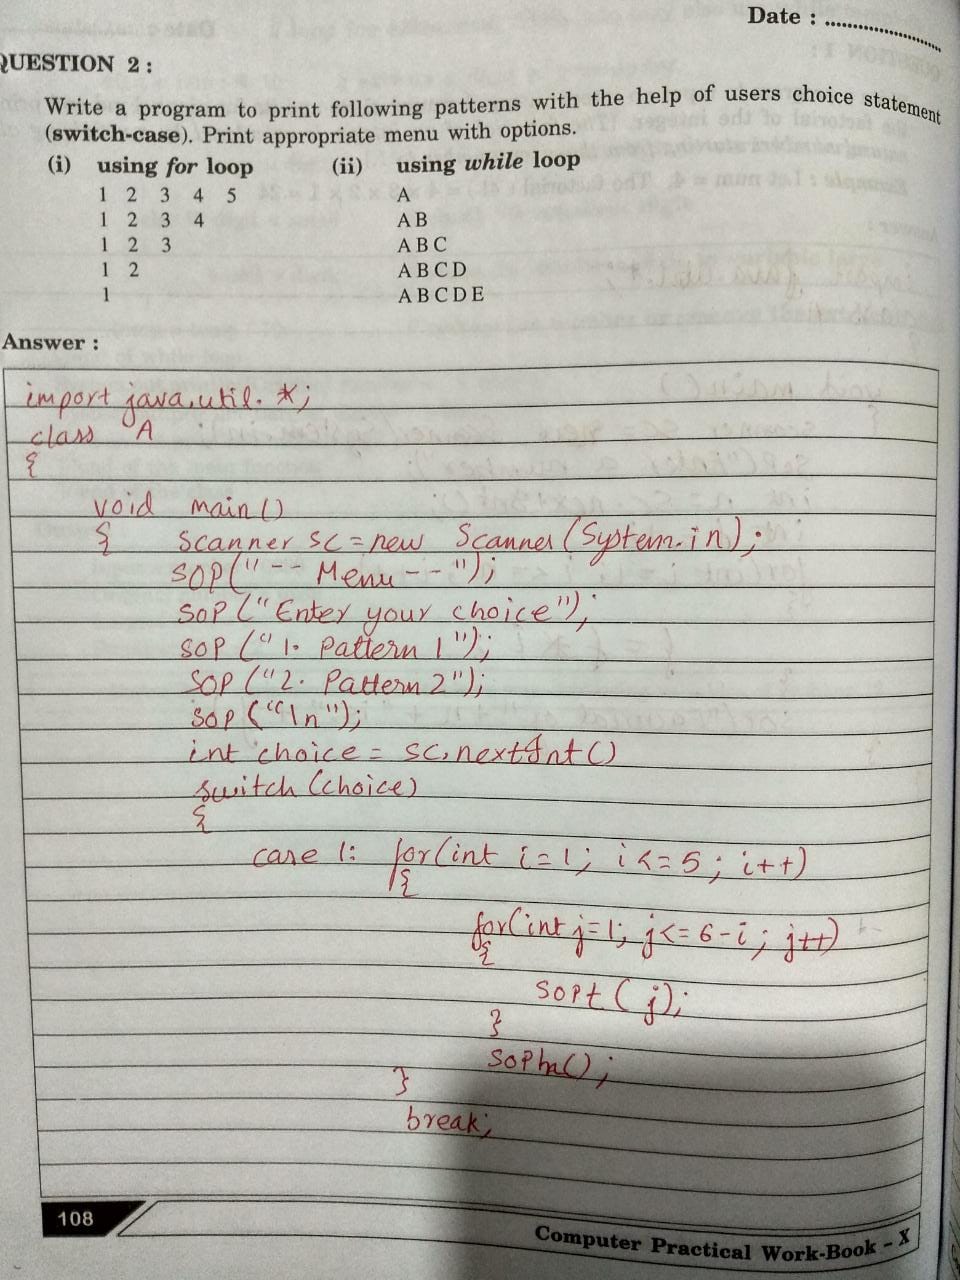 Date : ........................
QUESTION 2 :
Write a program to print following patterns with the help of users choice statement
(switch-case). Print appropriate menu with options.
(i) using for loop (ii) using while loop
1 2 3 4 5 A
1 2 3 4 A B
1 2 3 A B C
1 2 A B C D
1 A B C D E
Answer :
import java.util.*;
class A
{
void main()
{ Scanner sc = new Scanner(System.in);
SOP("-- Menu --");
SOP("Enter your choice");
SOP("1. Pattern 1");
SOP("2. Pattern 2");
SOP("\n");
int choice = sc.nextInt()
switch (choice)
{
case 1: for(int i=1; i<=5; i++)
{
for(int j=1; j<=6-i; j++)
{
SOPt(j);
}
SOPln();
}
break;
108
Computer Practical Work-Book - X